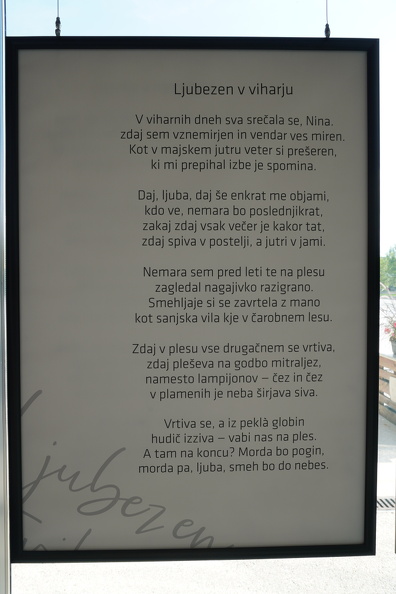 Ljubezen v viharju
V viharnih dneh sva srečala se, Nina.
zdaj sem vznemirjen in vendar ves miren.
Kot v majskem jutru veter si prešeren,
ki mi prepihal izbe je spomina.
Daj, ljuba, daj še enkrat me objami,
kdo ve, nemara bo poslednjikrat,
zakaj zdaj vsak večer je kakor tat,
zdaj spiva v postelji, a jutri v jami.
Nemara sem pred leti te na plesu
zagledal nagajivko razigrano.
Smehljaje si se zavrtela z mano
kot sanjska vila kje v čarobnem lesu.
Zdaj v plesu vse drugačnem se vrtiva,
zdaj pleševa na godbo mitraljez,
namesto lampijonov – čez in čez
v plamenih je neba širjava siva.
Vrtiva se, a iz peklà globin
hudič izziva – vabi nas na ples.
A tam na koncu? Morda bo pogin,
morda pa, ljuba, smeh bo do nebes.
Ljubezen